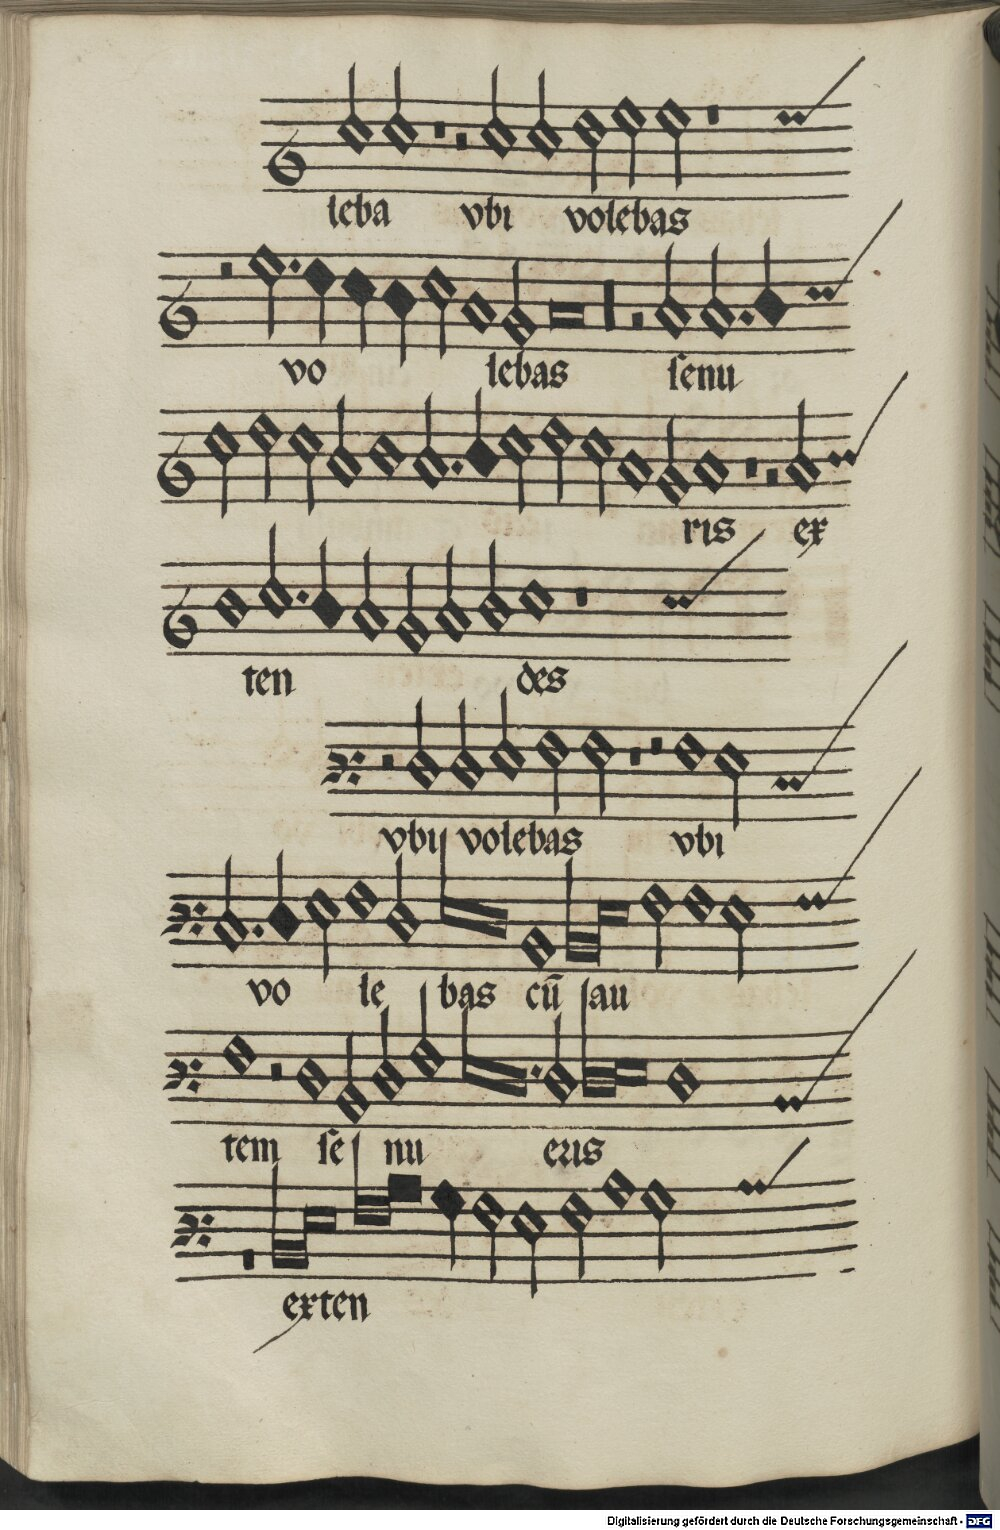 leba vbi volebas
vo lebas senu
ris ex
ten des
vbi volebas vbi
vo le bas cū au
tem se nu eris
exten
Digitalisierung gefördert durch die Deutsche Forschungsgemeinschaft - DFG